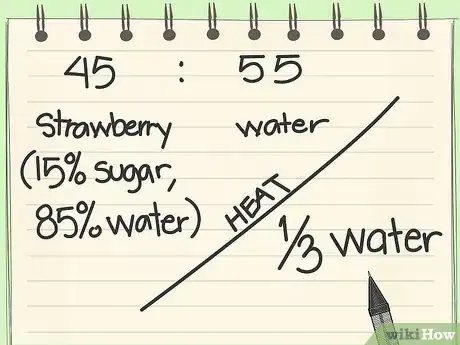 45 : 55
Strawberry water
(15% sugar,
85% water)
HEAT
1/3 water
wikiHow